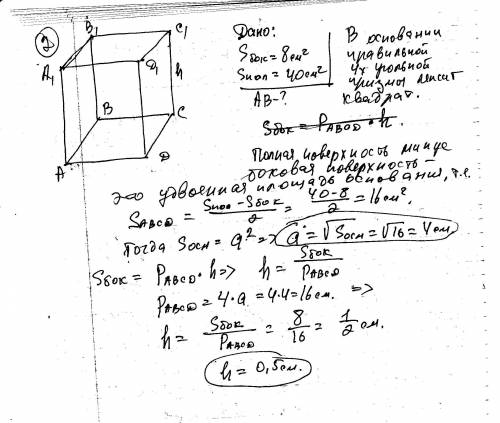 2
B₁
C₁
A₁
D₁
h
B
C
A
D
Дано:
Sбок = 8 см²
Sпол = 40 см²
AB - ?
В основании
правильной
4х угольной
призмы лежит
квадрат.
Sбок = PABCD · h.
Полная поверхность минус
боковая поверхность -
это удвоенная площадь основания, т.е.
SABCD = Sпол - Sбок / 2 = 40-8 / 2 = 16 см².
Тогда Sосн = a² => a = √Sосн = √16 = 4 см
Sбок = PABCD · h => h = Sбок / PABCD
PABCD = 4·a = 4·4 = 16 см. =>
h = Sбок / PABCD = 8/16 = 1/2 см.
h = 0,5 см.